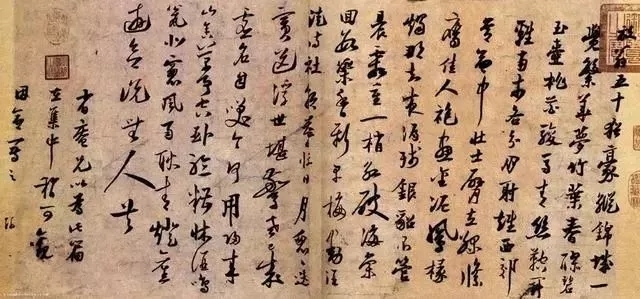 放翁五十猶豪縱錦城一
覺繁華夢竹葉春醪碧
玉壺桃花駿馬青絲鞚鬥
雞南市各分朋射雉西郊
常命中壯士臂立綠絛
鷹佳人袍畫金泥鳳椽
燭那知夜漏殘銀貂不管
晨霜重一梢紅破海棠
回數蕊香新早梅動酒
徒詩社朝暮忙日月匆匆迭
賓送浮世堪驚老已成
虛名自笑今何用歸來
山舍萬事空臥聽糟牀酒鳴
甕北窗風雨耿青燈舊
遊欲說無人共
省庵兄以為此篇
在集中稍可觀
因命寫之